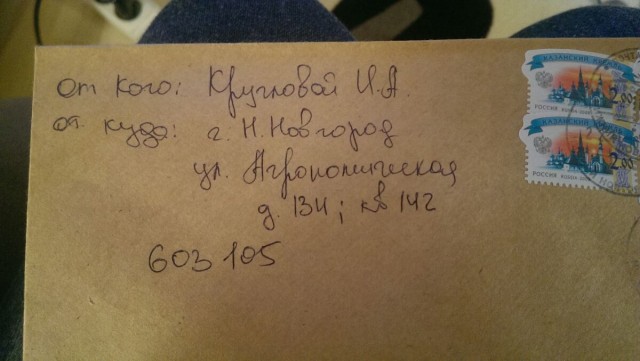 От кого: Кругловой И.А.
от. куда: г. Н.Новгород
ул. Агрономическая
д. 134; кв 142
603 105
КАЗАНСКИЙ
2.00
РОССИЯ
КАЗАНСКИЙ
2.00
РОССИЯ